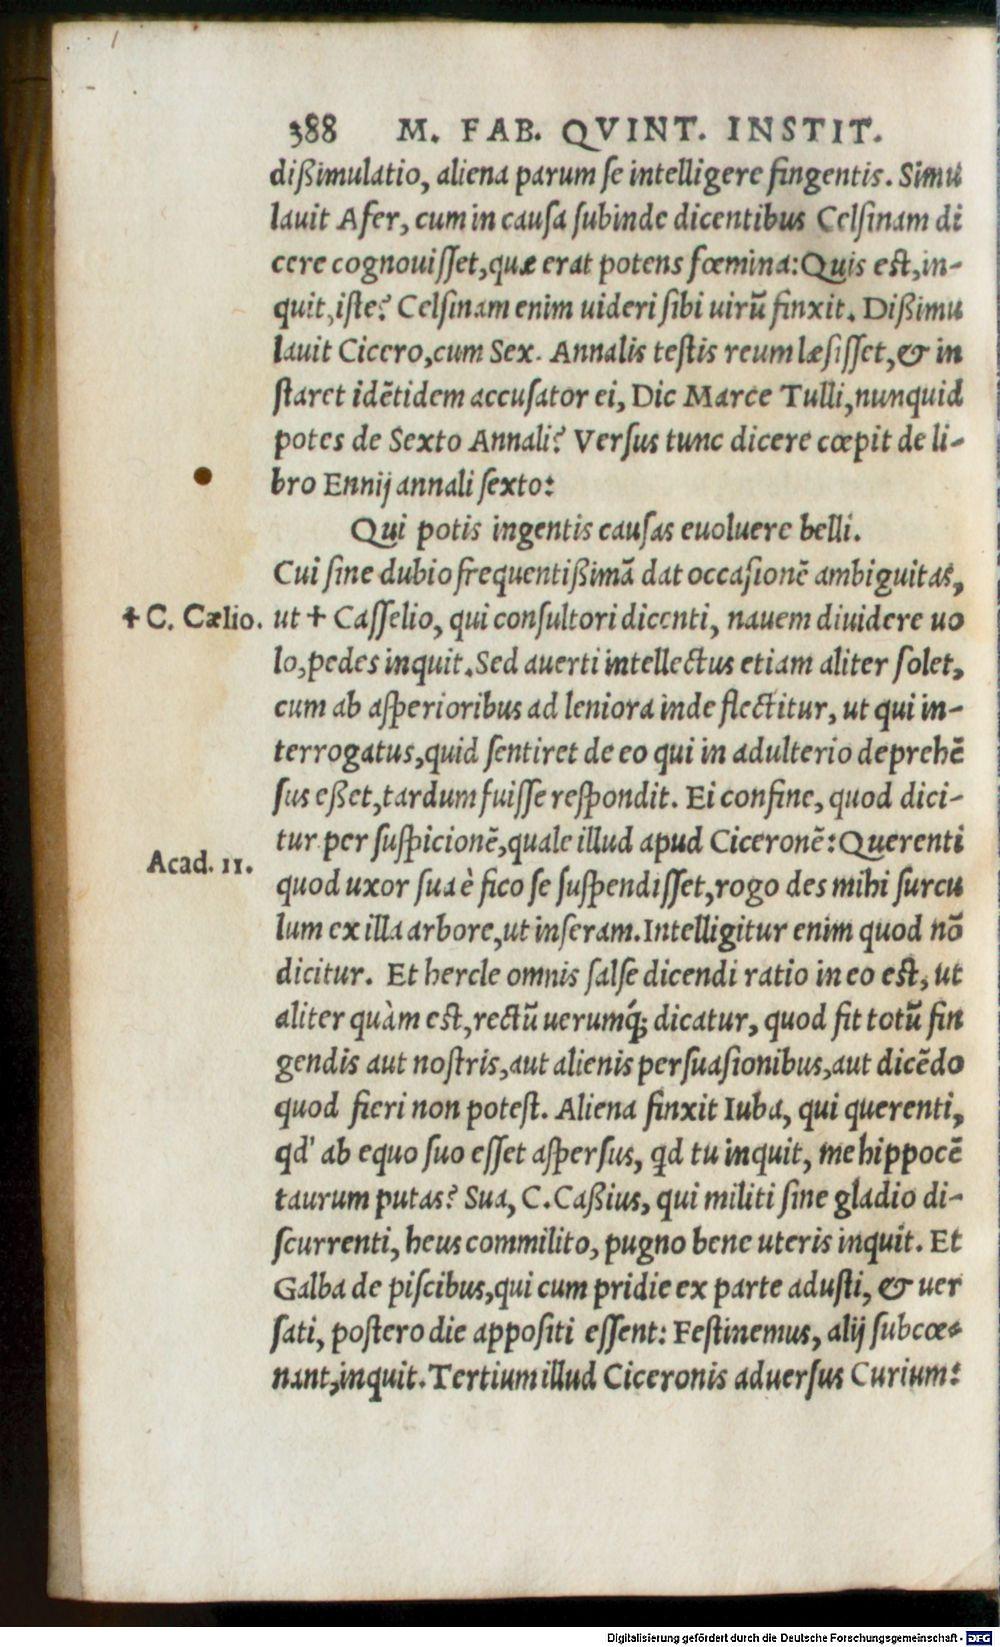 388 M. FAB. QVINT. INSTIT.
dißimulatio, aliena parum ſe intelligere fingentis. Simu
lauit Afer, cum in cauſa ſubinde dicentibus Celſinam di
cere cognouiſſet, quæ erat potens fœmina: Quis eſt, in-
quit, iſte? Celſinam enim uideri ſibi uirũ finxit. Dißimu
lauit Cicero, cum Sex. Annalis teſtis reum læſiſſet, & in
ſtaret idẽtidem accuſator ei, Dic Marce Tulli, nunquid
potes de Sexto Annali? Verſus tunc dicere cœpit de li-
bro Ennij annali ſexto:
Qui potis ingentis cauſas euoluere belli.
Cui ſine dubio frequentißimã dat occaſionẽ ambiguitas,
✝ C. Cælio. ut ✝ Caſſelio, qui conſultori dicenti, nauem diuidere uo
lo, pedes inquit. Sed auerti intellectus etiam aliter ſolet,
cum ab aſperioribus ad leniora inde flectitur, ut qui in-
terrogatus, quid ſentiret de eo qui in adulterio deprehẽ
ſus eßet, tardum fuiſſe reſpondit. Ei confine, quod dici-
tur per ſuſpicionẽ, quale illud apud Ciceronẽ: Querenti
Acad. 11.
quod uxor ſua è fico ſe ſuſpendiſſet, rogo des mihi ſurcu
lum ex illa arbore, ut inſeram. Intelligitur enim quod nõ
dicitur. Et hercle omnis ſalſe dicendi ratio in eo eſt, ut
aliter quàm eſt, rectũ uerumq́; dicatur, quod fit totũ fin
gendis aut noſtris, aut alienis perſuaſionibus, aut dicẽdo
quod fieri non poteſt. Aliena finxit Iuba, qui querenti,
qd' ab equo ſuo eſſet aſperſus, qd tu inquit, me hippocẽ
taurum putas? Sua, C. Caßius, qui militi ſine gladio di-
ſcurrenti, heus commilito, pugno bene uteris inquit. Et
Galba de piſcibus, qui cum pridie ex parte aduſti, & uer
ſati, poſtero die appoſiti eſſent: Feſtinemus, alij ſubcœ-
nant, inquit. Tertium illud Ciceronis aduerſus Curium:
Digitalisierung gefördert durch die Deutsche Forschungsgemeinschaft - DFG